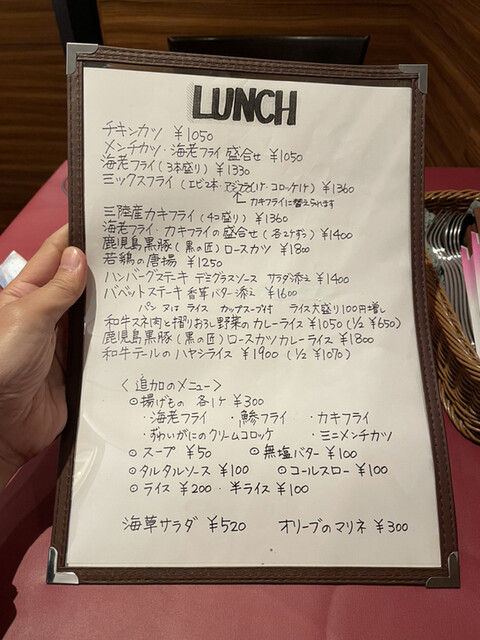 LUNCH
チキンカツ ¥1050
メンチカツ・海老フライ 盛合せ ¥1050
海老フライ(3本盛り) ¥1330
ミックスフライ (エビ2本・アジフライ1ケ・コロッケ1ケ) ¥1360
カキフライに替えられます
三陸産カキフライ (4コ盛り) ¥1360
海老フライ・カキフライの盛合せ (各2ケずつ) ¥1400
鹿児島黒豚 (黒の匠) ロースカツ ¥1800
若鶏の唐揚 ¥1250
ハンバーグステーキ デミグラスソース サラダ添え ¥1400
バベットステーキ 香草バター添え ¥1600
パン又はライス カップスープ付 ライス大盛り100円増し
和牛スネ肉と摺りおろし野菜のカレーライス ¥1050 (½ ¥650)
鹿児島黒豚 (黒の匠) ロースカツカレーライス ¥1800
和牛テールのハヤシライス ¥1900 (½ ¥1070)
<追加のメニュー>
⊙揚げもの 各1ケ ¥300
・海老フライ ・鯵フライ ・カキフライ
・ずわいがにのクリームコロッケ ・ミニメンチカツ
⊙スープ ¥50 ⊙無塩バター ¥100
⊙タルタルソース ¥100 ⊙コールスロー ¥100
⊙ライス ¥200・半ライス ¥100
海草サラダ ¥520 オリーブのマリネ ¥300